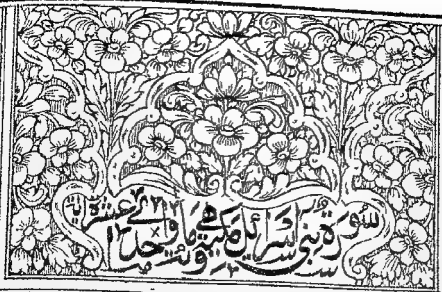 سورة بنی اسرائیل مکیة وهی مائة واحدی عشرة اية